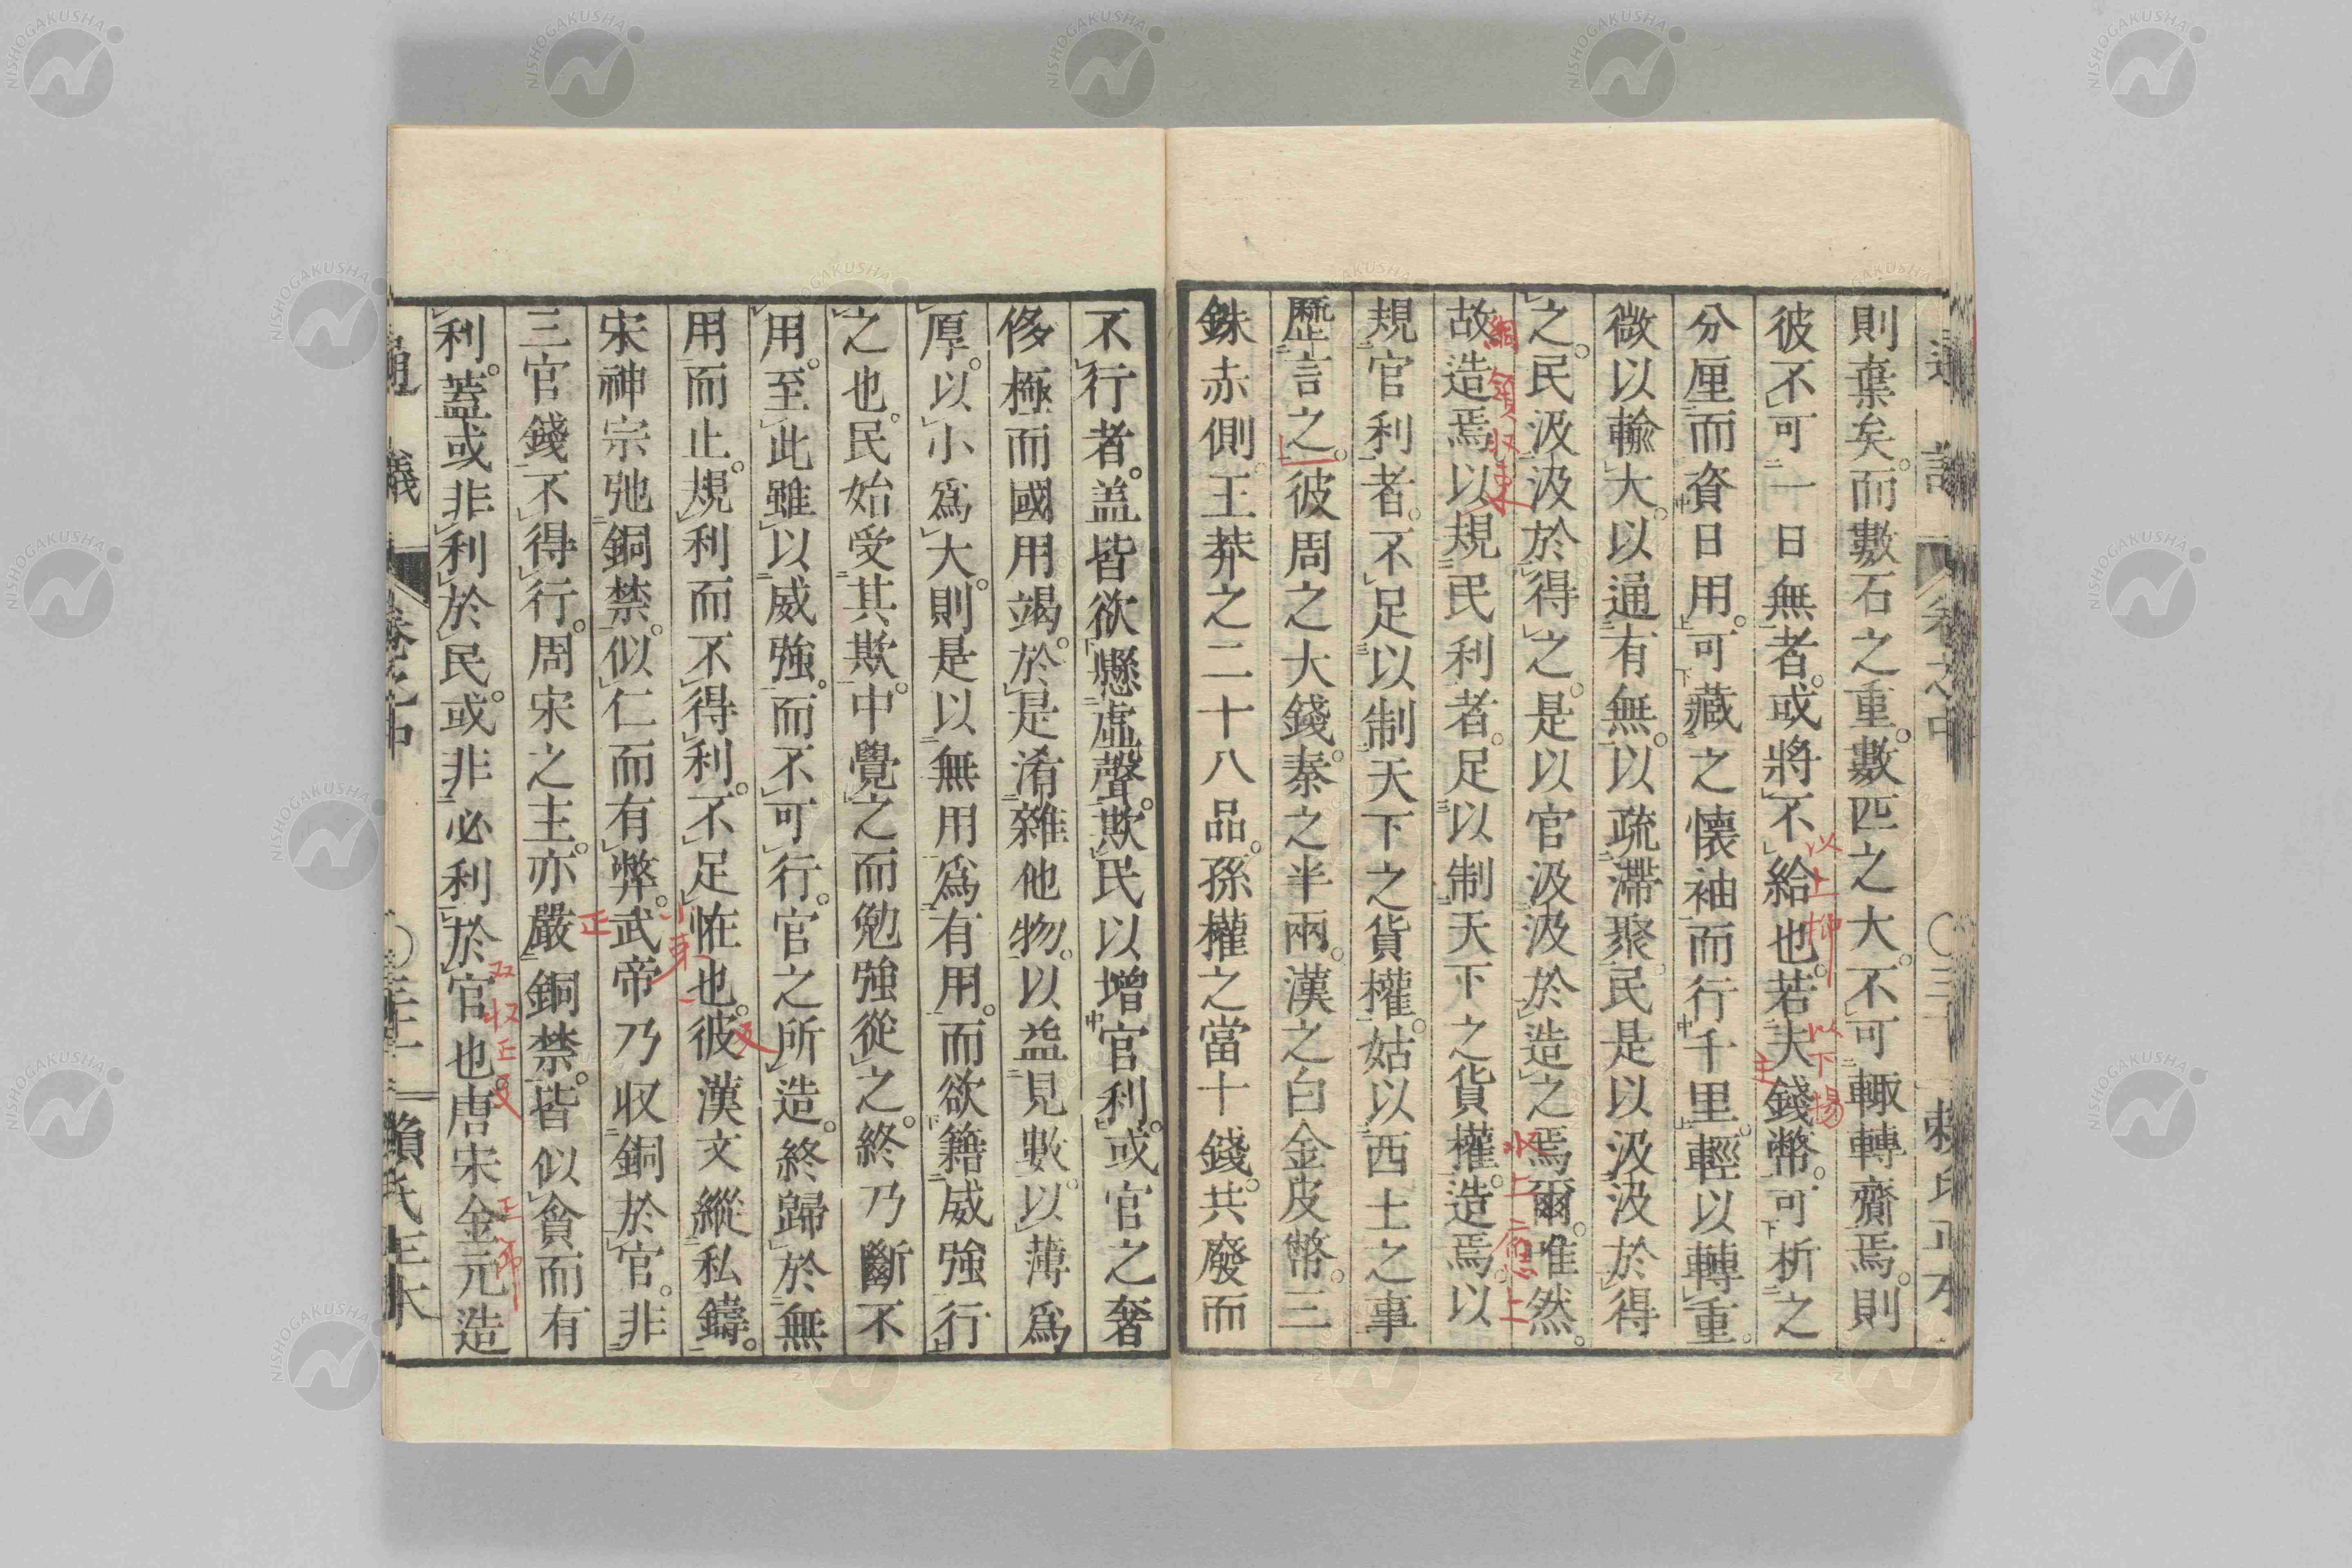 則棄矣。而數石之重。數匹之大。不可輙轉齎焉。則
彼不可一日無者。或將不給也。若夫錢幣。可析之
分厘而資日用。可藏之懷袖而行千里。輕以轉重。
微以輸大。以通有無。以疏滯聚。民是以汲汲於得
之。民汲汲於得之。是以官汲汲於造之焉爾。唯然。
故造焉以規民利者。足以制天下之貨權。造焉。以
規官利者。不足以制天下之貨權。姑以西土之事
歷言之。彼周之大錢。秦之半兩。漢之白金皮幣。三
銖赤側。王莽之二十八品。孫權之當十錢。共廢而
不行者。盖皆欲懸虛聲。欺民以增官利。或官之奢
侈極而國用竭。於是淆雜他物。以益見數。以薄爲
厚。以小爲大。則是以無用爲有用。而欲籍威強行
之也。民始受其欺。中覺之而勉強從之。終乃斷不
用。至此雖以威強。而不可行。官之所造。終歸於無
用而止。規利而不得利。不足恠也。彼漢文縱私鑄。
宋神宗弛銅禁。似仁而有弊。武帝乃収銅於官。非
三官錢不得行。周宋之主。亦嚴銅禁。皆似貪而有
利。蓋或非利於民。或非必利於官也。唐宋金元造
通議
卷之中
賴氏正本
以上抑
以下揚
主
網領収束
反
正
双収正反
NISHOGAKUSHA